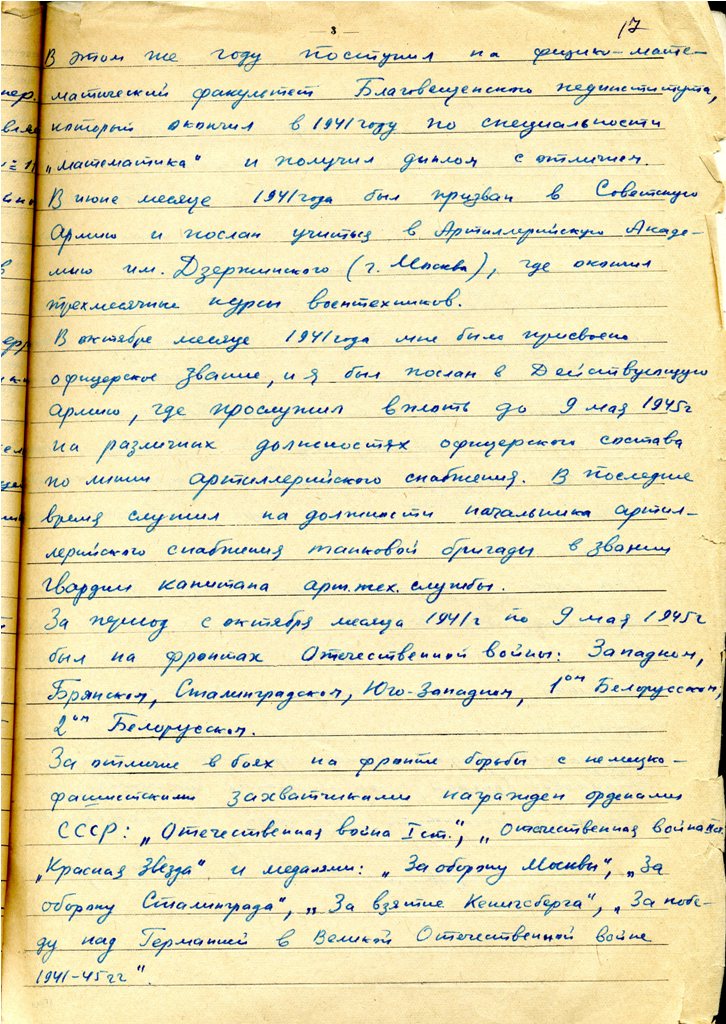 3
17
В этом же году поступил на физико-мате-
матический факультет Благовещенского пединститута,
который окончил в 1941 году по специальности
„математика“ и получил диплом с отличием.
В июне месяце 1941 года был призван в Советскую
Армию и послан учиться в Артиллерийскую Акаде-
мию им. Дзержинского (г. Москва), где окончил
трехмесячные курсы воентехников.
В октябре месяце 1941 года мне было присвоено
офицерское звание, и я был послан в Действующую
армию, где прослужил вплоть до 9 мая 1945г
на различных должностях офицерского состава
по линии артиллерийского снабжения. В последнее
время служил на должности начальника артил-
лерийского снабжения танковой бригады в звании
гвардии капитана арт.тех. службы.
За период с октября месяца 1941г по 9 мая 1945г
был на фронтах Отечественной войны: Западном,
Брянском, Сталинградском, Юго-Западном, 1ом Белорусском,
2ом Белорусском.
За отличие в боях на фронте борьбы с немецко-
фашистскими захватчиками награжден орденами
СССР: „Отечественная война I ст.“, „Отечественная война II ст.
„Красная Звезда“ и медалями: „За оборону Москвы“, „За
оборону Сталинграда“, „За взятие Кенигсберга“, „За побе-
ду над Германией в Великой Отечественной войне
1941-45гг“.